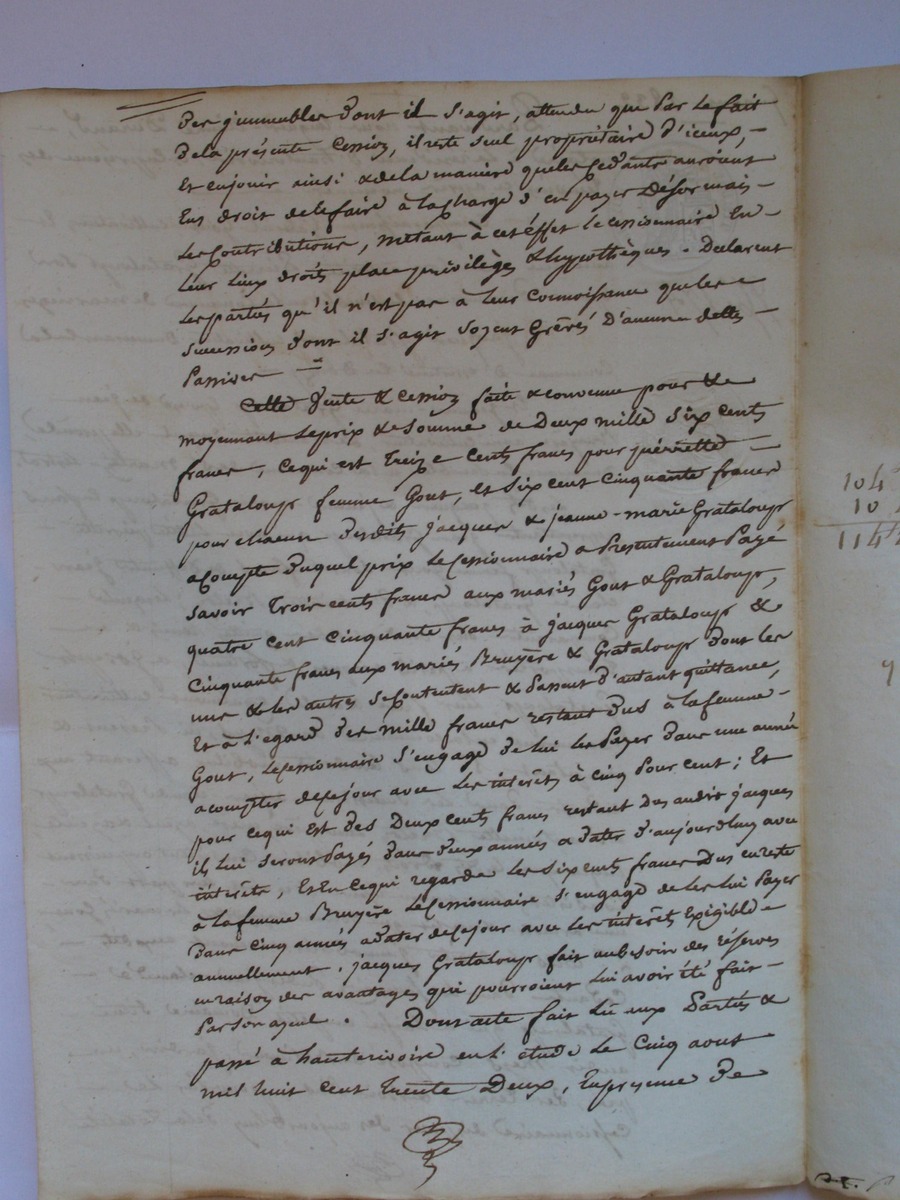 des jmmeubles dont il s'agit, attendu que par le fait
de la présente Cession, il reste seul propriétaire d'iceux, –
Et en jouir ainsi & de la manière que les Cédants auroient
Eus droit de le faire à la charge d'en payer Désormais –
Les Contributions, métant à cet éffet le cessionnaire En –
Leur Lieux droits place privilèges & hypothèques. Declarent
Les partiés qu'il n'est pas à leur Connoissance que les
successions dont il s'agit soyent Grévés D'aucune dettes –
Passives =
Cette Vente & Cession faite & convenue pour &
moyennant Le prix & Somme de Deux mille Six cents
francs, Ce qui est Treize Cents francs pour pierrette –
Grataloup femme Gout, Et Six cent Cinquante francs
pour chacun desdits jacques & jeanne-marie Grataloup
a Compte Duquel prix Le Cessionnaire a Présentement Payé
Savoir Trois cents francs aux mariés Gout & Grataloup,
quatre cent cinquante francs à jacques Grataloup &
Cinquante francs aux mariés Bruyère & Grataloup dont les
uns & les autres se Contentent & Passent d'autant quittance,
Et à l'egard des mille francs restant dus à la femme –
Gout, Le Cessionnaire S'engage de lui les Payer dans une année
a compter de ce jour avec Les interêts à cinq pour cent ; Et
pour ce qui est des Deux cents francs restant dus audit jacques
ils Lui seront Payés dans deux années a dater d'aujourdhuy avec
interêts, Et En ce qui regarde Les Six cents francs Dus en reste
à la femme Bruyère Le Cessionnaire s'engage de les lui Payer
dans Cinq années a dater de ce jour avec Les interêts Exigible
annuellement. jacques Grataloup fait au besoin des réserves
en raison des avantages qui pourroient lui avoir été fait –
Par son ayeul. Dont acte fait lu aux Partiés &
passé à hauterivoire en l'étude Le Cinq aout
mil huit cent trente Deux, En présence de
104
10
1144
9